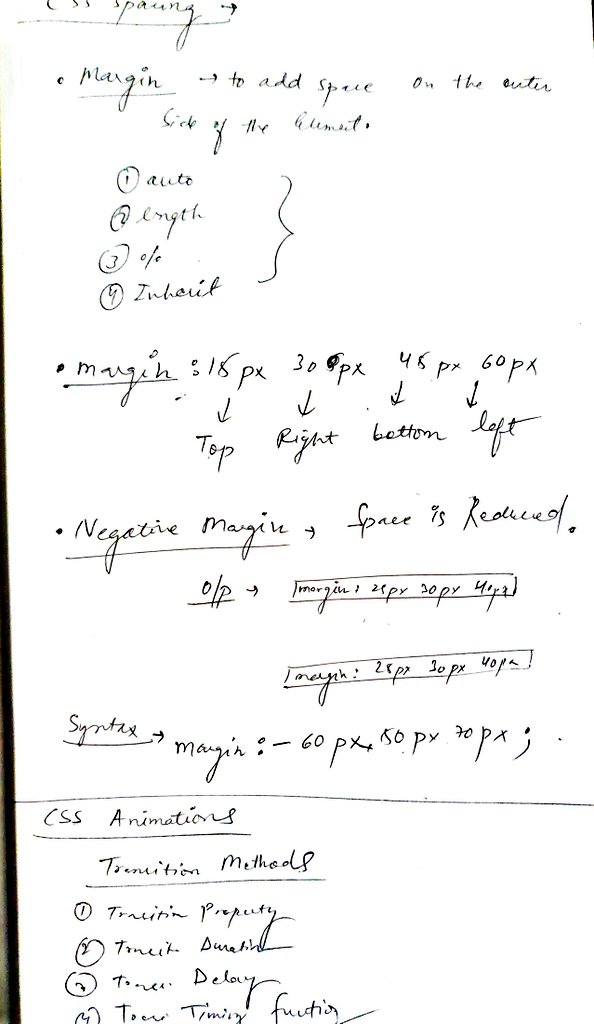 CSS Spacing →
• Margin → to add space on the outer
side of the Element.
① auto
② length
③ %
④ Inherit
• margin : 15 px 30 px 45 px 60 px
↓ ↓ ↓ ↓
Top Right bottom left
• Negative Margin → Space is Reduced.
O/p → margin: 25px 30px 40px
margin: 25px 30px 40px
Syntax → margin : - 60 px 50 px 70 px ;
CSS Animations
Transition Methods
① Property
② Duration
③ Delay
④ Timing function